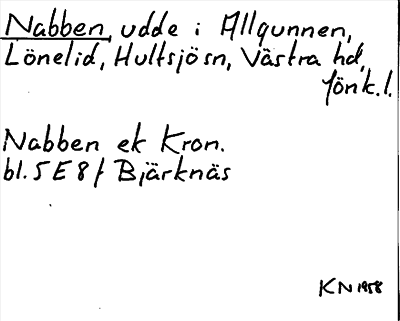 Nabben, udde i Allgunnen,
Lönelid, Hultsjö sn, Västra hd,
Jönk.l.
Nabben ek Kron.
bl. 5 E 8 f Bjärknäs
KN 1958